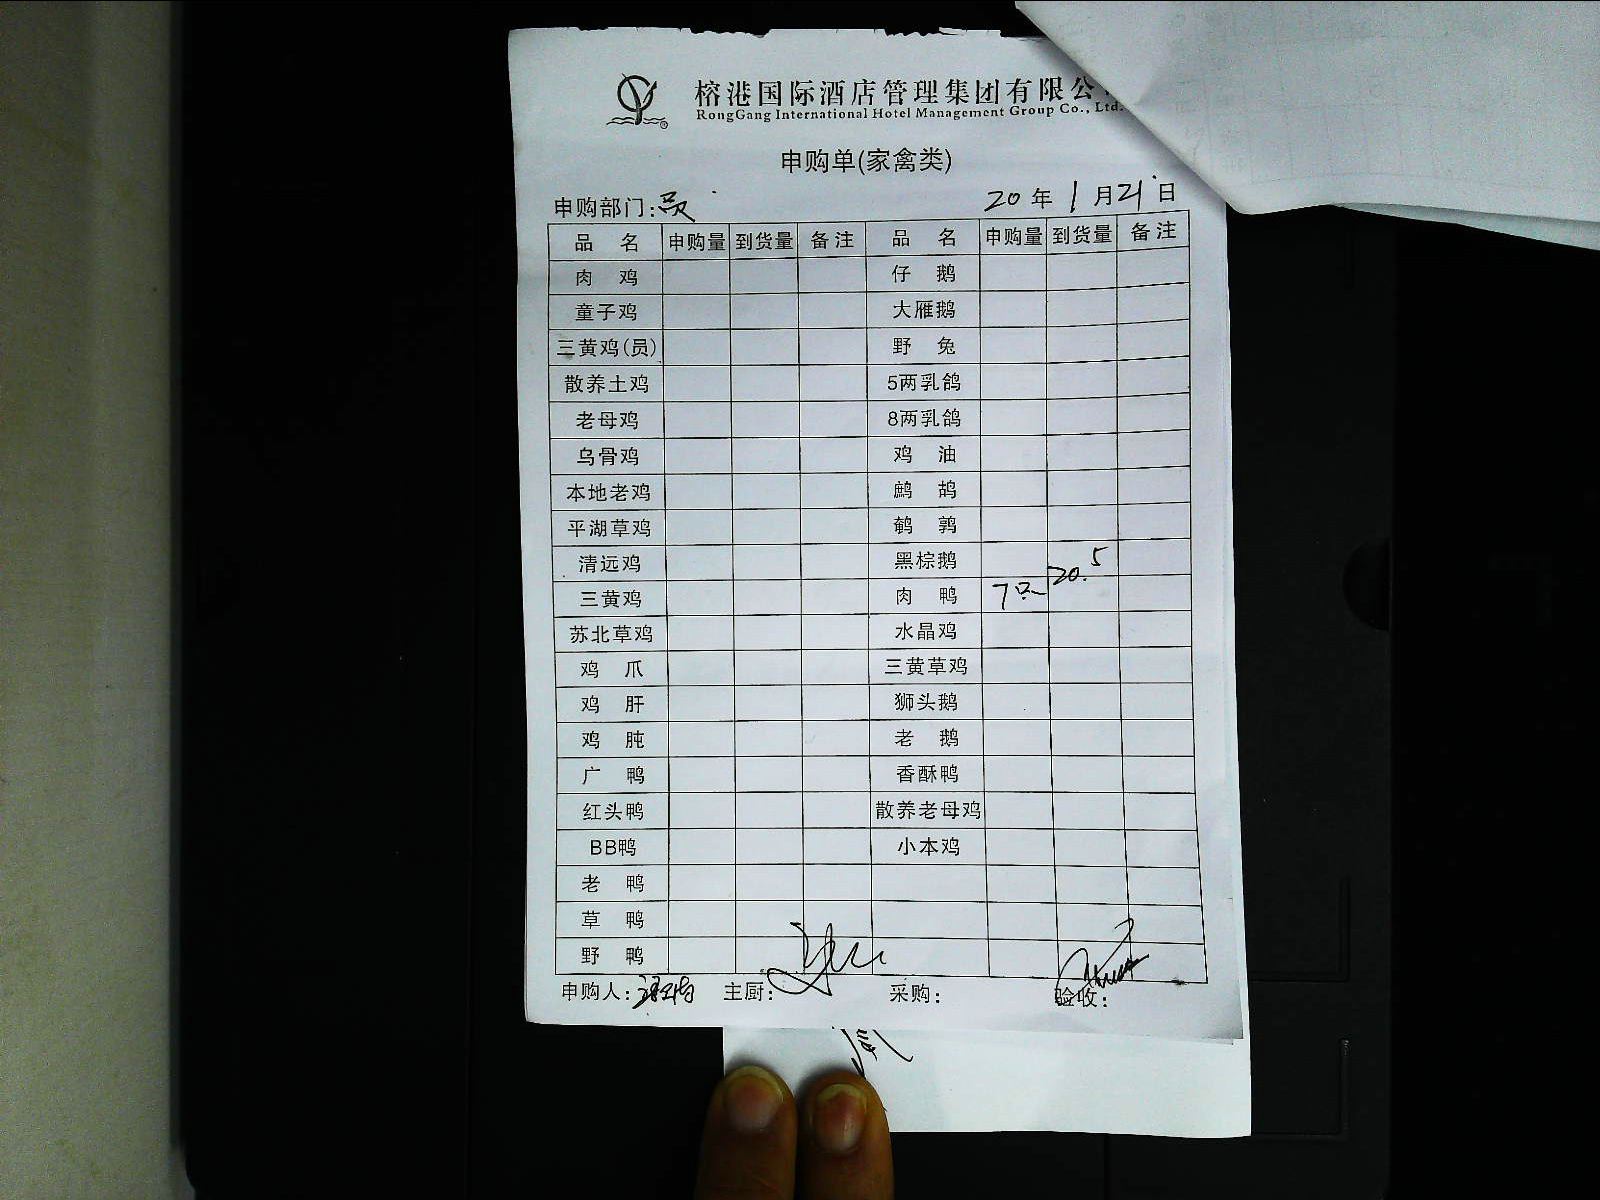 榕港国际酒店管理集团有限公
RongGang International Hotel Management Group Co., Ltd.
申购单(家禽类)
申购部门: 20年1月21日
品名 申购量 到货量 备注 品名 申购量 到货量 备注
肉鸡 仔鹅
童子鸡 大雁鹅
三黄鸡(员) 野兔
散养土鸡 5两乳鸽
老母鸡 8两乳鸽
乌骨鸡 鸡油
本地老鸡 鹧鸪
平湖草鸡 鹌鹑
清远鸡 黑棕鹅
三黄鸡 肉鸭 7只 20.5
苏北草鸡 水晶鸡
鸡爪 三黄草鸡
鸡肝 狮头鹅
鸡肫 老鹅
广鸭 香酥鸭
红头鸭 散养老母鸡
BB鸭 小本鸡
老鸭
草鸭
野鸭
申购人: 主厨: 采购: 验收: